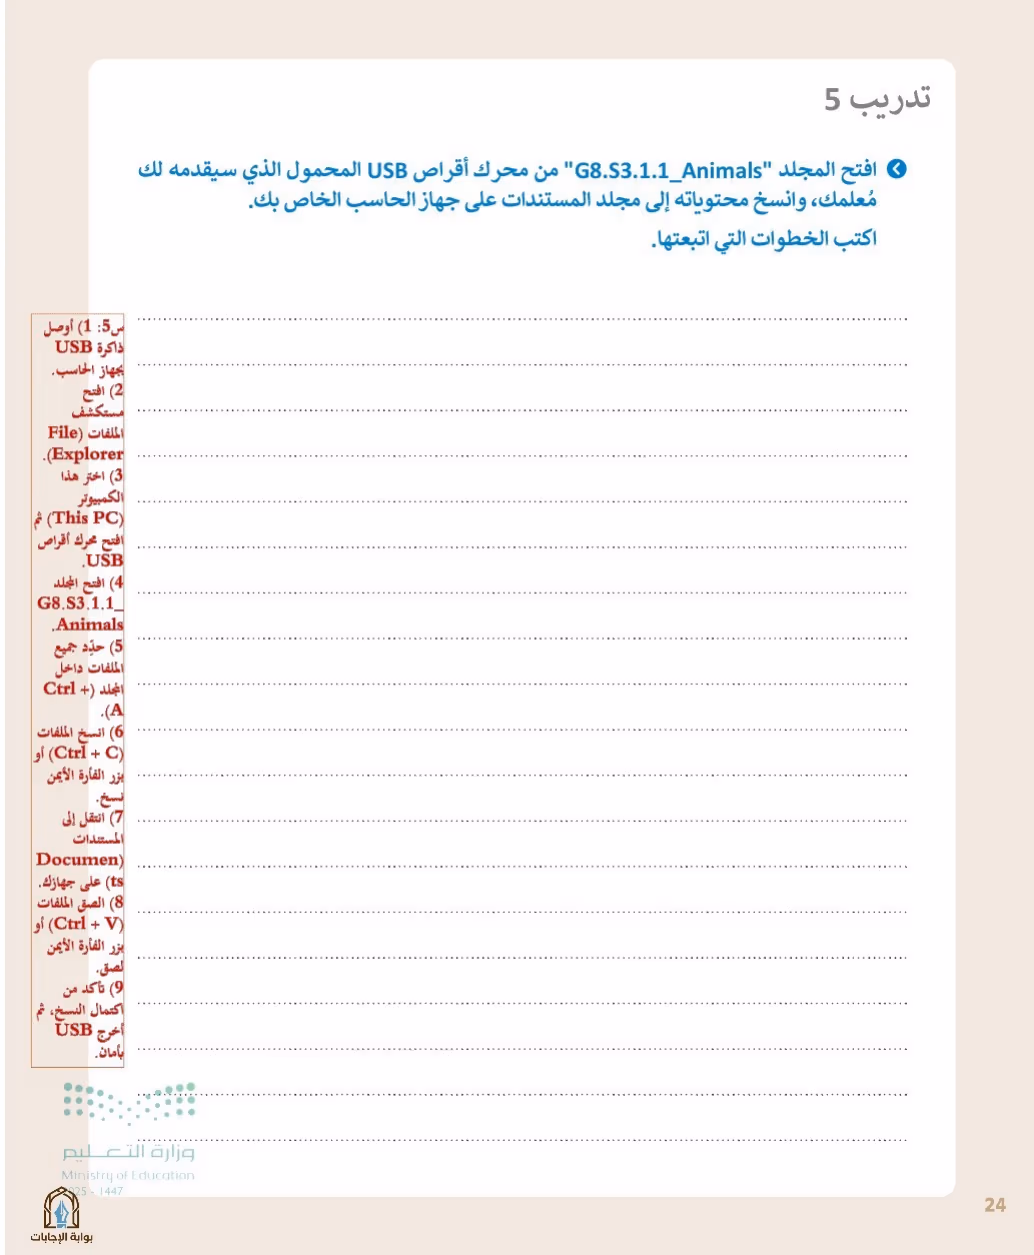 تدريب 5
افتح المجلد "G8.S3.1.1_Animals" من محرك أقراص USB المحمول الذي سيقدمه لك
مُعلمك، وانسخ محتوياته إلى مجلد المستندات على جهاز الحاسب الخاص بك.
اكتب الخطوات التي اتبعتها.
س5: 1) أوصل
ذاكرة USB
بجهاز الحاسب.
2) افتح
مستكشف
الملفات (File
Explorer).
3) اختر هذا
الكمبيوتر
(This PC) ثم
افتح محرك أقراص
USB.
4) افتح المجلد
G8.S3.1.1_
Animals.
5) حدّد جميع
الملفات داخل
المجلد (Ctrl +
A).
6) انسخ الملفات
(Ctrl + C) أو
بزر الفأرة الأيمن
نسخ.
7) انتقل إلى
المستندات
(Documen
ts) على جهازك.
8) الصق الملفات
(Ctrl + V) أو
بزر الفأرة الأيمن
لصق.
9) تأكد من
اكتمال النسخ، ثم
أخرج USB
بأمان.
وزارة التعـــليم
Ministry of Education
2025 - 1447
بوابة الإجابات
24